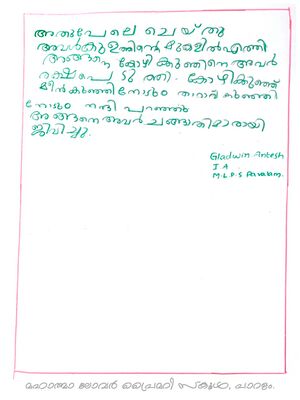 അതുപേലെ ചെയ്തു
അവൾക്കു ഉത്തിരൻ മുകളിൽ എത്തി
അങ്ങനെ കോഴി കുഞ്ഞിനെ അവർ
രക്ഷപെടുത്തി. കോഴികുഞ്ഞ്
മീൻകുഞ്ഞിനോടും താറാവ് കുഞ്ഞി
നോടും നന്ദി പറഞ്ഞു
അങ്ങനെ അവർ ചങ്ങാതിമാരായി
ജീവിച്ചു.
Gladwin Antesh
I A
M.L.P.S Paralam.
മഹാത്മാ ലോവർ പ്രൈമറി സ്കൂൾ, പാറളം.